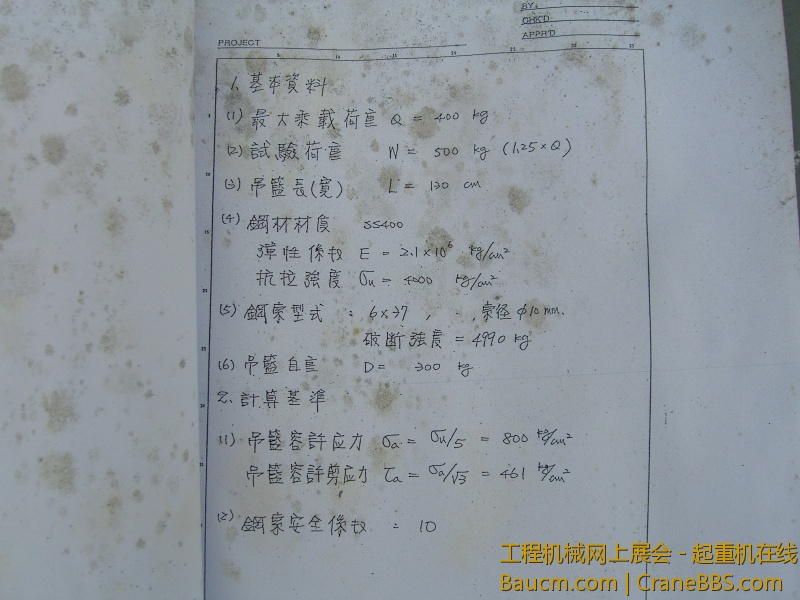 BY:
CHK'D
APPR'D
PROJECT
1. 基本資料
(1) 最大乘載荷重 Q = 400 kg
(2) 試驗荷重 W = 500 kg (1.25×Q)
(3) 吊籃長(寬) L = 130 cm
(4) 鋼材材質 SS400
彈性係数 E = 2.1×10⁶ kg/cm²
抗拉強度 σu = 4000 kg/cm²
(5) 鋼索型式 : 6×37 , 索径 φ10 mm.
破断強度 = 4990 kg
(6) 吊籃自重 D = 300 kg
2. 計算基準
(1) 吊籃容許应力 σa = σu/5 = 800 kg/cm²
吊籃容許剪应力 τa = σa/√3 = 461 kg/cm²
(2) 鋼索安全係数 = 10
工程机械网上展会 - 起重机在线
Baucm.com | CraneBBS.com